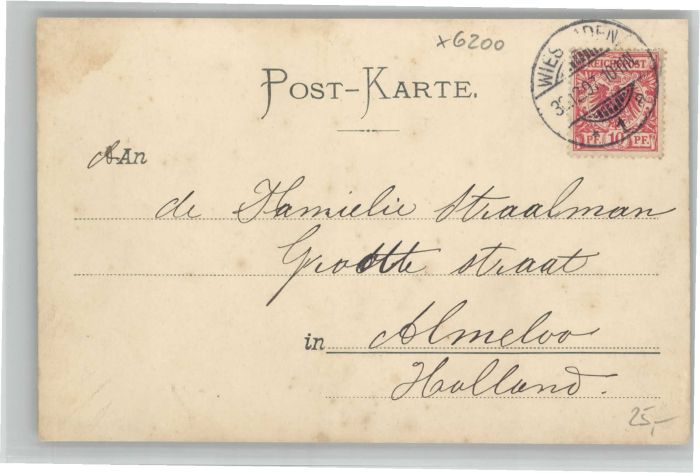 x6200
WIESBADEN
1 a
REICHSPOST
PF. 10 PF.
POST-KARTE.
An
de Familie Straalman
Grootte straat
in Almeloo
Holland.
25,-